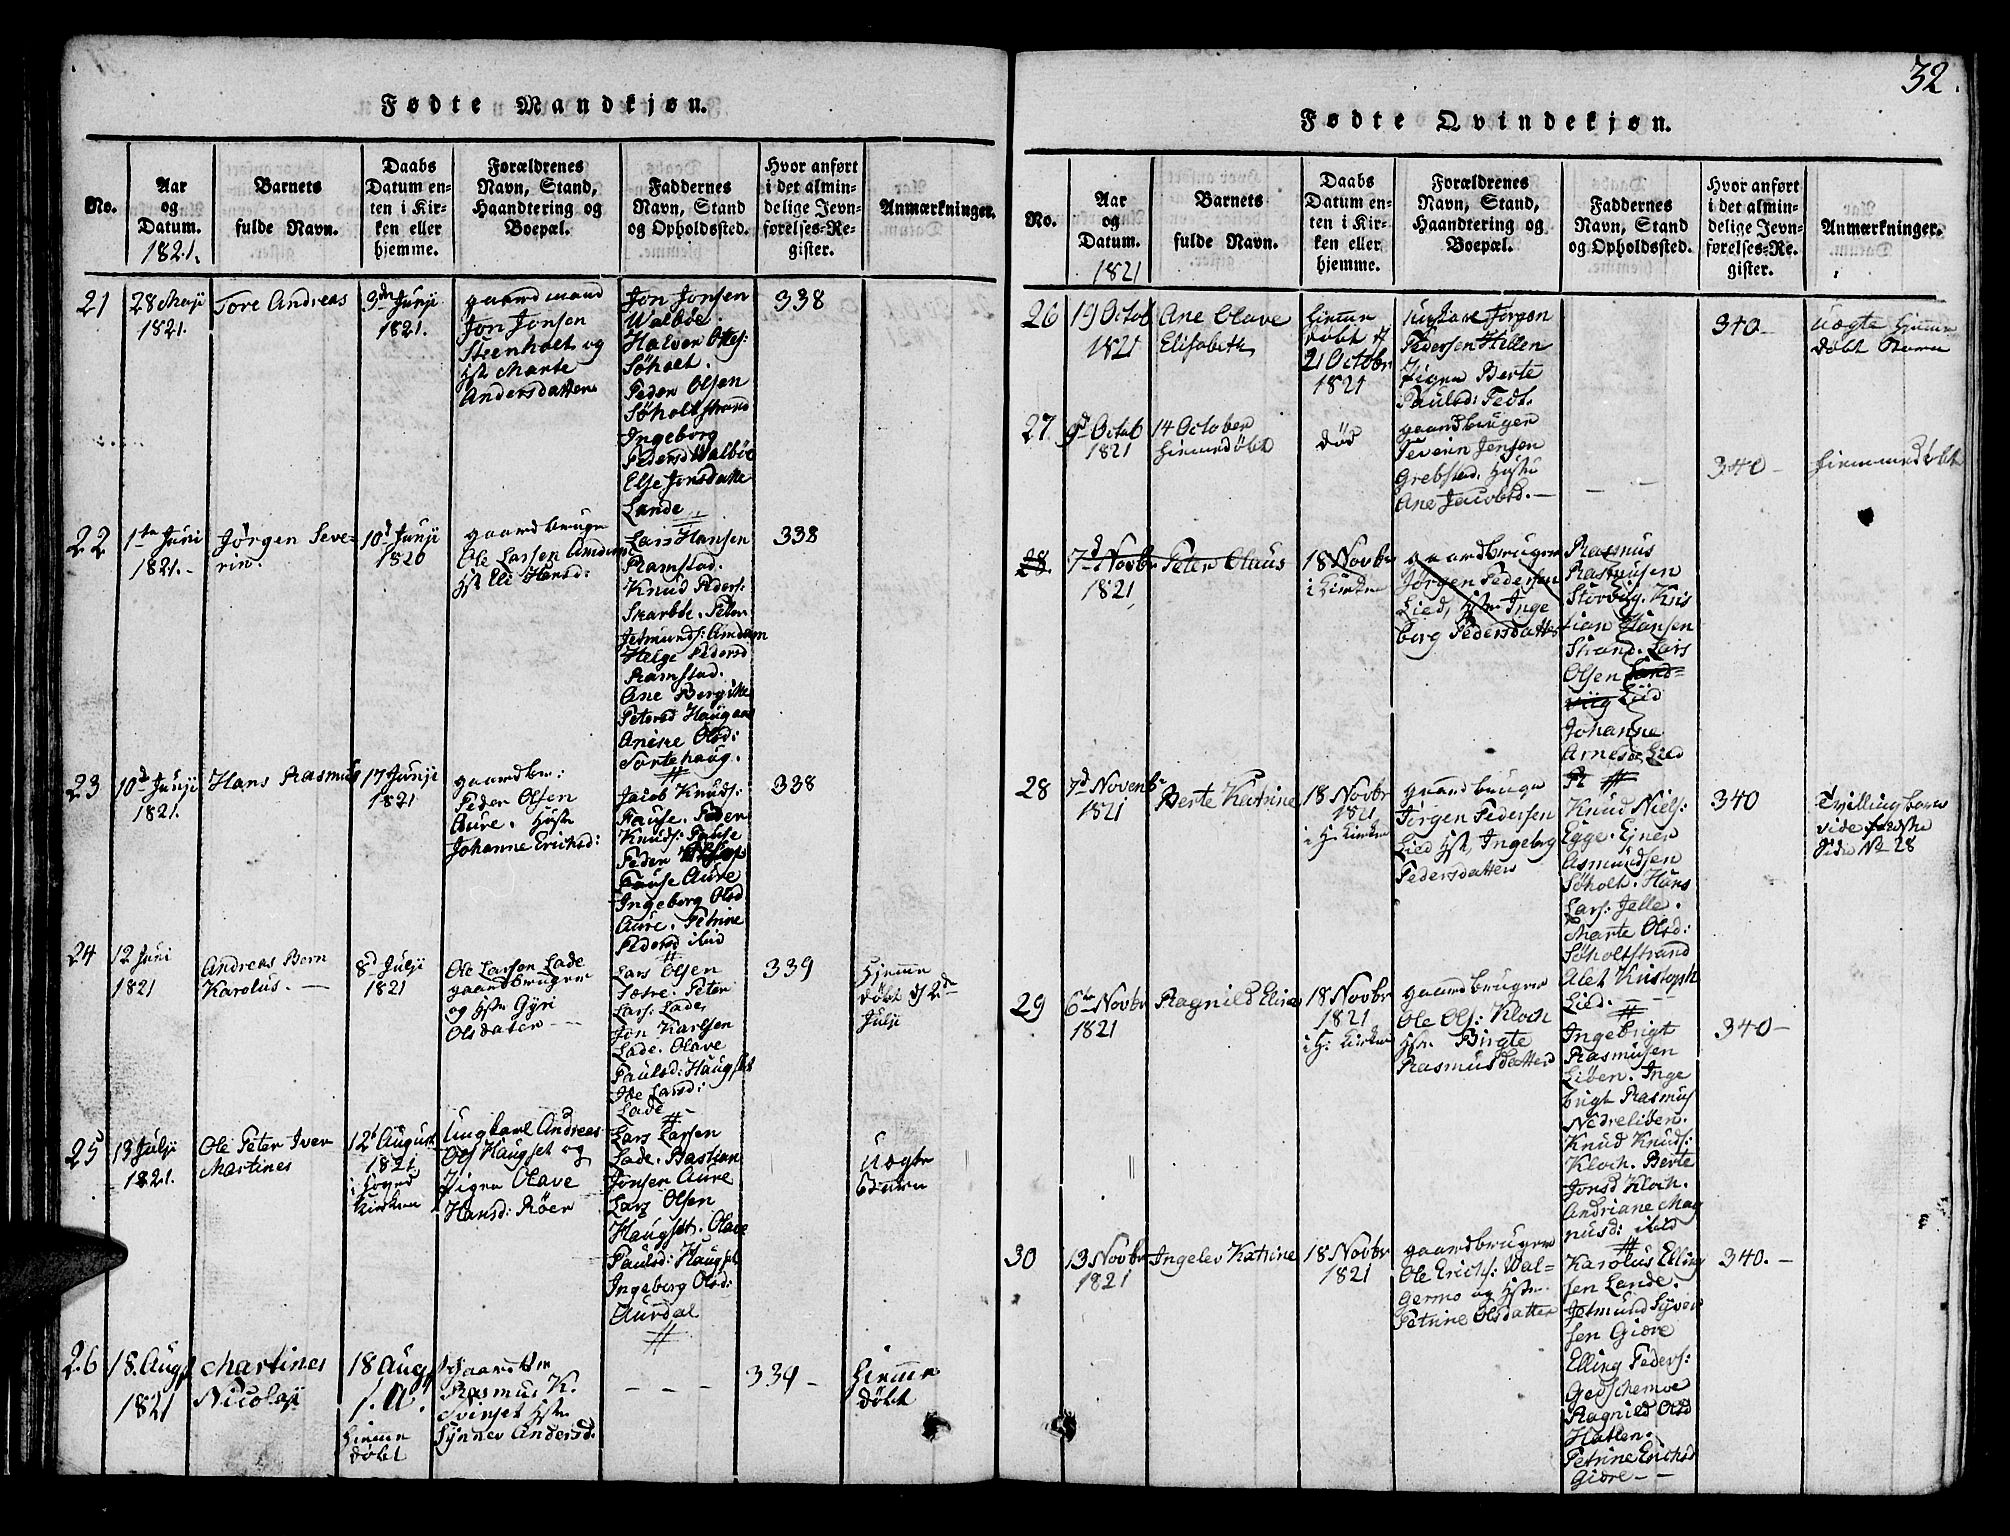 32.
Fødte Mandkjøn.
No.
Aar
og
Datum.
1821.
Barnets
fulde Navn.
Daabs
Datum en-
ten i Kir-
ken eller
hjemme.
Forældrenes
Navn, Stand,
Haandtering og
Boepæl.
Faddernes
Navn, Stand
og Opholdssted.
Hvor anført
i det almin-
delige Jevn-
førelses-Re-
gister.
Anmærkninger.
21
28 Maji
1821.
Tore Andreas
3die Junji
1821.
gaardmand
Jon Jonsen
Steenholt og
Hst. Marte
Andersdatter
Jon Jonsen
Walbøe.
Halvor Ottes:
Søholt.
Peder Olsen
Søholtstrand
Ingeborg
Pedersd Walbøe
Else Jonsdatte
Lande
338
22
1te Juni
1821.-
Jørgen Seve-
rin.
10d Junji
1820
gaardbruge
Ole Larsen Amdam
Hst Eli Hansd:
Lars Hansen
Ramstad.
Knud Peders:
Skarbøe. Peter
Jetmunds: Amdam
Helge Pedersd
Ramstad.
Ane Bergitte
Petersd Haugaas
Anine Olsd:
Tortehaug.
338
23
10d Junji
1821.
Hans Rasmus
17 Junji
1821
gaardbr:
Peder Olsen
Aure. Hust
Johanne Erichsd:
Jacob Knuds:
Fause. Peder
Knuds: Fause
Peder
Fause Aure
Ingeborg Olsd
Aure. Petrine
Pedersd ibid
338
24
12 Juni
1821
Andreas Bern
Karolus. —
8d Julji
1821
Ole Larsen Lade
gaardbruger
og Hstr Gyri
Olsdater - -
Lars Olsen
Sætre. Peter
Lars: Lade
Jon Karlsen
Lade. Olave
Paulsd: Haugset
Ide Larsd:
Lade
339
Hjemme
døbt d 2den
Julji
25
13 Julji
1821.
Ole Peter Iver
Martines
12t August
1821
i Hoved
Kirken
Ungkarl Andreas
Ols Haugset og
Pigen Olave
Hansd: Røer
Lars Larsen
Lade. Bastian
Jonsen Aure
Lars Olsen
Haugset. Olave
Paulsd: Haugset
Ingeborg Olsd:
Aurdal
Uægte
Barn
26
18. Augst
1821
Martines
Nicolaji
18 Augst
s. A.
Hjemme
døbt
Gaardm
Rasmus K.
Svinset Hstr.
Synnev Andersd.
- - -
339 -
Hjemme
døbt
Fødte Qvindekjøn.
No.
Aar
og
Datum.
1821
Barnets
fulde Navn.
Daabs
Datum en-
ten i Kir-
ken eller
hjemme.
Forældrenes
Navn, Stand,
Haandtering og
Boepæl.
Faddernes
Navn, Stand
og Opholdssted.
Hvor anført
i det almin-
delige Jevn-
førelses-Re-
gister.
Anmærkninger.
26
19 Octob
1821
Ane Olave
Elisabeth
hjemme
døbt d
21 Octobr
1821
Jørgen
Pedersen Hillen
Pigen Berte
Paulsd: Fedt.
340-
Uægte hjemme
døbt Barn
27
9d Octob
1821
14 October
hjemmedøbt
død
gaardbruger
Severin Jensen
Grebstad. Hustr
Ane Jacobsd. —
- -
340 -
hjemmedøbt
28.
7d Novbr
1821
Peter Olaus
18 Novbr
i Kirken
gaardbruger
Jørgen Pedersen
Lied, Hstr Inge
borg Pedersdatter
Rasmus
Rasmusen
Storvug. Kris
tian Hansen
Strand. Lars
Olsen Land-
viig Lied
Johanne
Arnesd Lied
28
7d Novemb
1821
Berte Katrine
18 Novbr
1821
i H: Kirken
gaardbruger
Jørgen Pedersen
Lied Hst. Ingeborg
Pedersdatter
Knud Niels:
Egge. Ejner
Asmundsen
Søholt. Hans
Lars: Jelle.
Marte Olsd:
Søholtstrand
Alet Kristoph
Lied. - -
340
Tvillingbarn
vide første
Side No 28
29
6te Novbr
1821
Ragnild Elise
18 Novbr
1821
i H: Kirken
gaardbruger
Ole Ols: Kloch
Hstr. Birgte
Rasmusdatter
Ingebrigt
Rasmusen
Liøen. Inge
brigt Rasmus
Nedreliden.
Knud Knuds:
Kloch. Berte
Jonsd Kloch.
Andriane Mag
nusd: ibid
340-
30
13 Novbr
1821
Ingelev Katrine
18 Novbr
1821
gaardbruger
Ole Erichs: Wal-
Germo og Hstr
Petrine Olsdatter
Karolus Elling
sen Lande.
Jetmund Syver
sen Giøre
Elling Peders:
Gedschemoe
Ragnild Olsd
Hatlen.
Petrine Erichsd
Giøre - -
340. -